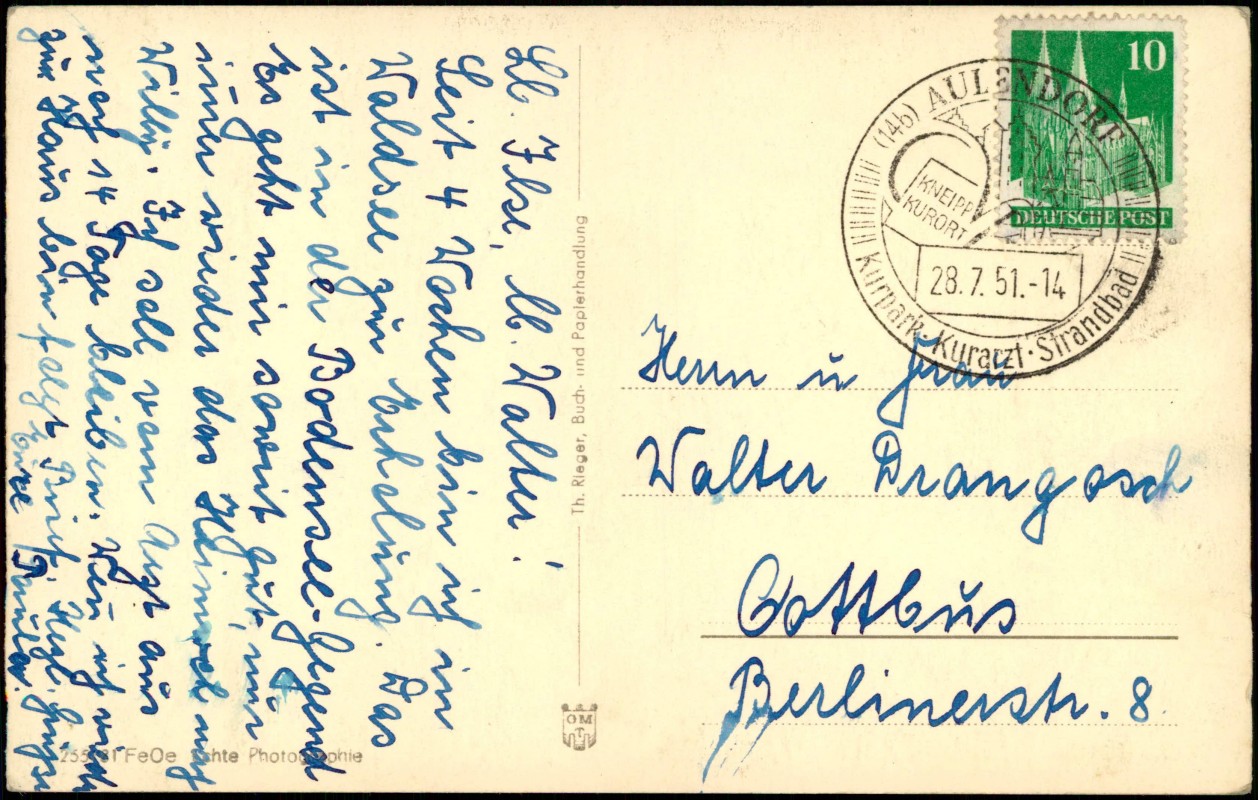 Lb. Ilse, lb. Walter!
Seit 4 Wochen bin ich in
Waldsee zur Erholung. Das
ist in der Bodensee-Gegend
Es geht mir soweit gut, nur
immer wieder das Heimweh nach
Willy. Ich soll vom Arzt aus
noch 14 Tage bleiben. Wenn ich wieder
zu Haus bin folgt Brief. Herzl. Grüße
Eure Paula.
255/81 FeOe Echte Photographie
Th. Rieger, Buch- und Papierhandlung
OM
10
DEUTSCHE POST
(14b) AULENDORF
KNEIPP
KURORT
28.7.51.-14
Kurpark · Kurarzt · Strandbad
Herrn u Frau
Walter Drangosch
Cottbus
Berlinerstr. 8